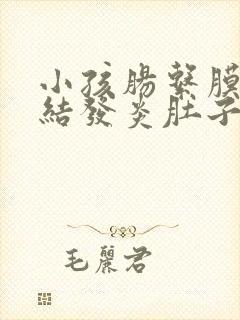 小孩腸繫膜
結發炎肚子
毛麗君